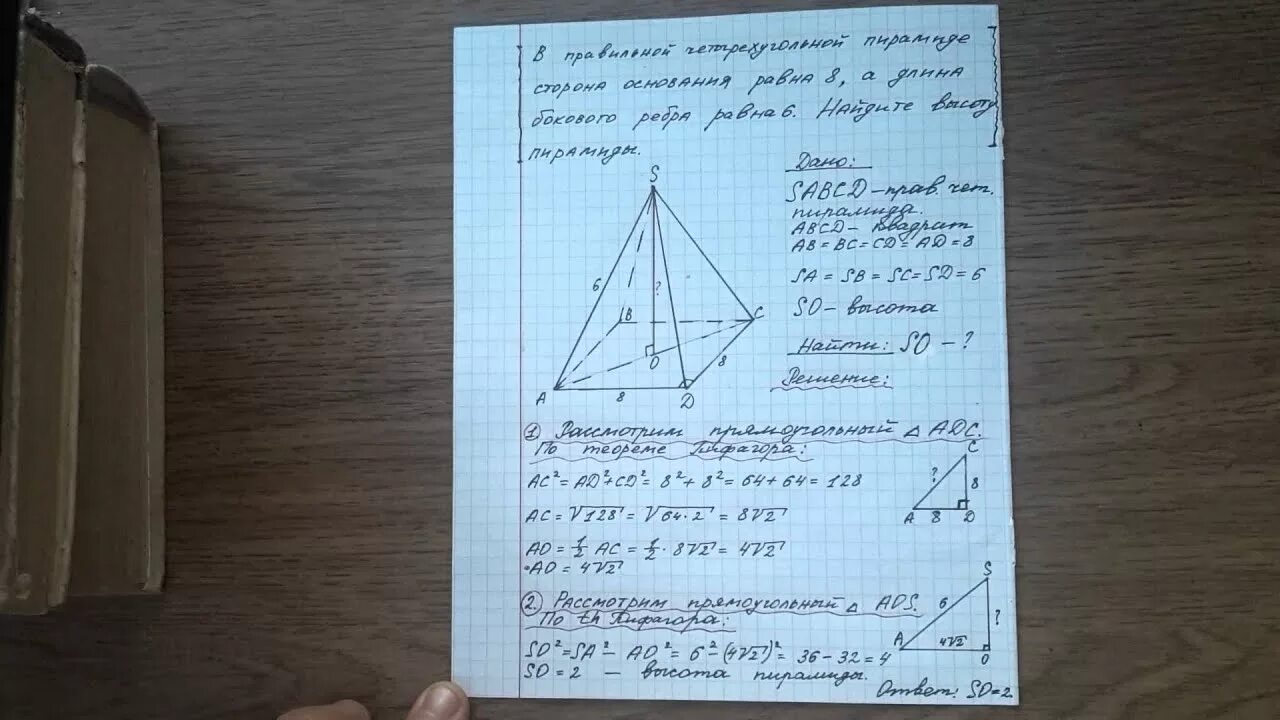 В правильной четырехугольной пирамиде
сторона основания равна 8, а длина
бокового ребра равна 6. Найдите высоту
пирамиды.
Дано:
SABCD – прав. чет.
пирамида.
ABCD – квадрат
AB = BC = CD = AD = 8
SA = SB = SC = SD = 6
SO – высота
Найти: SO – ?
Решение:
S
6
?
B
C
O
8
A
8
D
1) Рассмотрим прямоугольный △ ADC.
По теореме Пифагора:
AC² = AD² + CD² = 8² + 8² = 64 + 64 = 128
AC = √128 = √64·2 = 8√2
AO = 1/2 AC = 1/2 · 8√2 = 4√2
AO = 4√2
C
?
8
A
8
D
2.) Рассмотрим прямоугольный △ AOS.
По th Пифагора:
SO² = SA² – AO² = 6² – (4√2)² = 36 – 32 = 4
SO = 2 – высота пирамиды.
S
6
?
A
4√2
O
Ответ: SO = 2